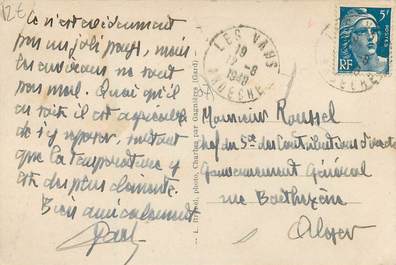 12€
Ce n'est évidemment
pas un joli pays, mais
les environs ne sont
pas mal. Quoi qu'il
en soit il est agréable
de s'y reposer, surtout
que la température y
est des plus clémente.
Bien amicalement
LES VANS
19
12-8
1948
ARDECHE
5F
RF
L. Brunel, photo, Charles par Gagnières (Gard)
Monsieur Roussel
Chef du Sce des Contributions directes
Gouvernement Général
rue Berthezène
Alger